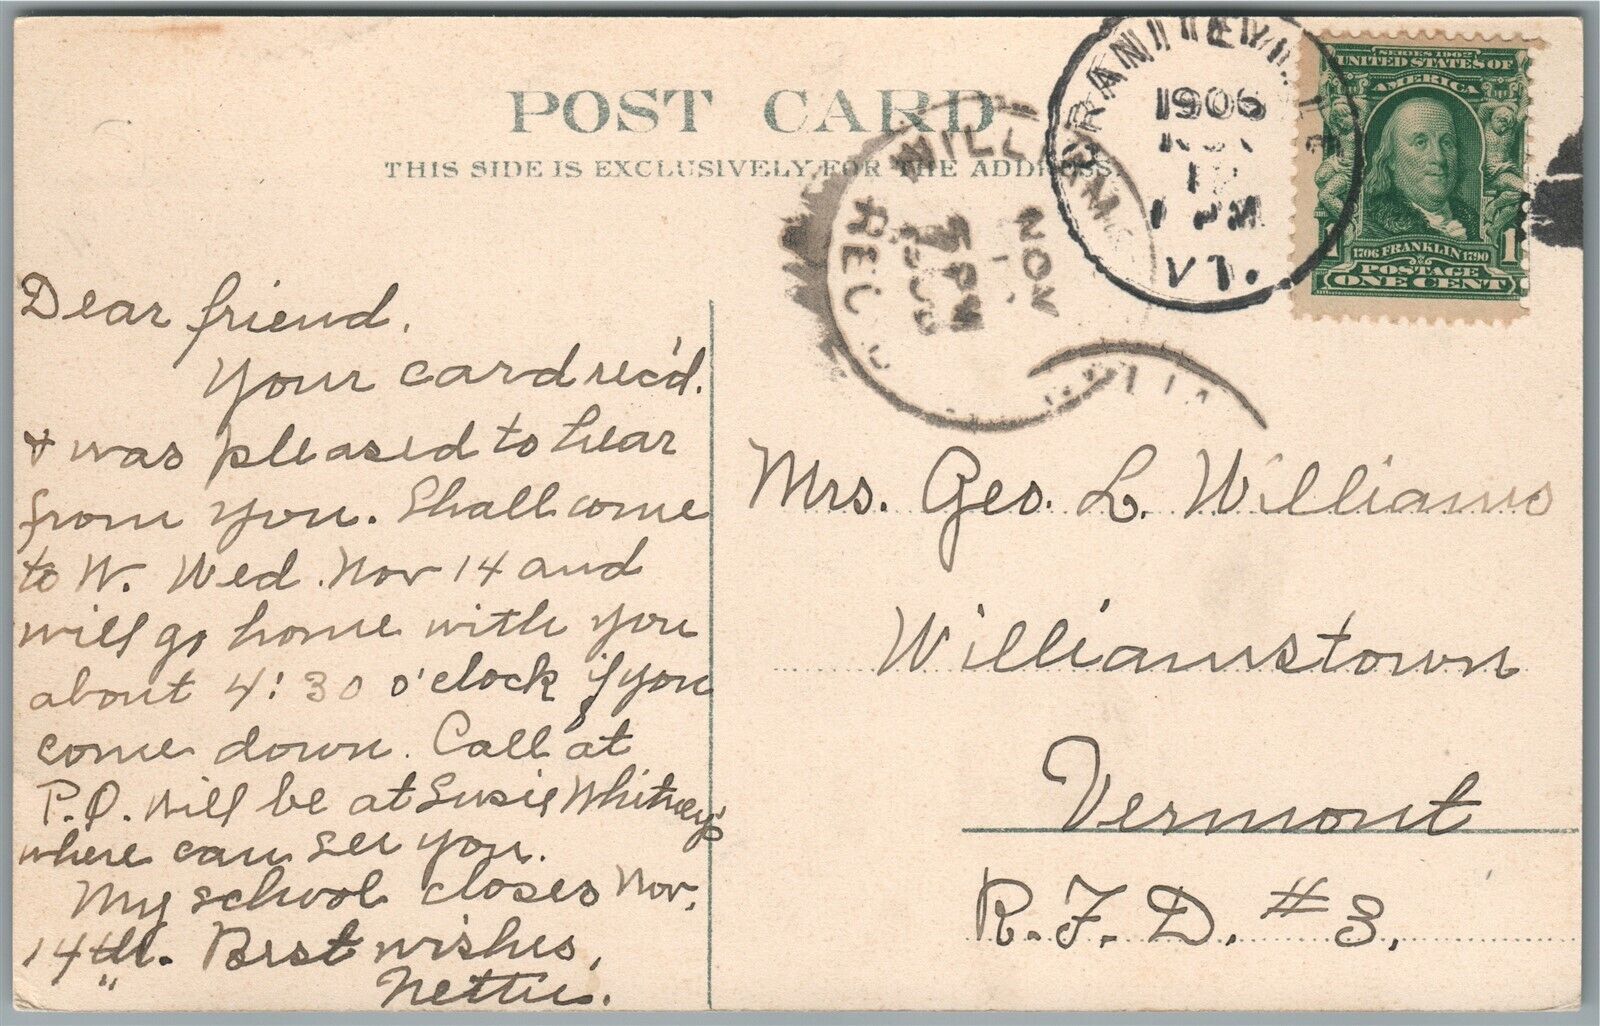 POST CARD
THIS SIDE IS EXCLUSIVELY FOR THE ADDRESS.
GRANITEVILLE
1906
NOV
1 PM
VT.
WILLIAMS
NOV
7 PM
REC'D
SERIES 1902
UNITED STATES OF
AMERICA
1706 FRANKLIN 1790
1 1
POSTAGE
ONE CENT
Dear friend.
Your card rec'd.
& was pleased to hear
from you. Shall come
to W. Wed. Nov 14 and
will go home with you
about 4:30 o'clock if you
come down. Call at
P.O. Will be at Susie Whitney's
where can see you.
My school closes Nov.
14th. Best wishes,
Nettie.
Mrs. Geo. L. Williams
Williamstown
Vermont
R.F.D. #3.